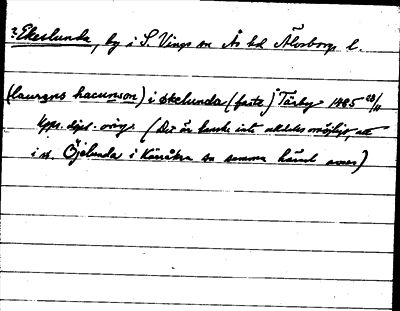 ? Ekeslunda, by i S. Vings sn Ås hd Älvsborgs l.
(laurens hacunson) i ekelunda (fasta) Tärby 1485 28/11
Upps. dipl. orig. (Det är kanske inte alldeles omöjligt, att
i st. Öjelunda i Kinnåkra sn samma härad avses)